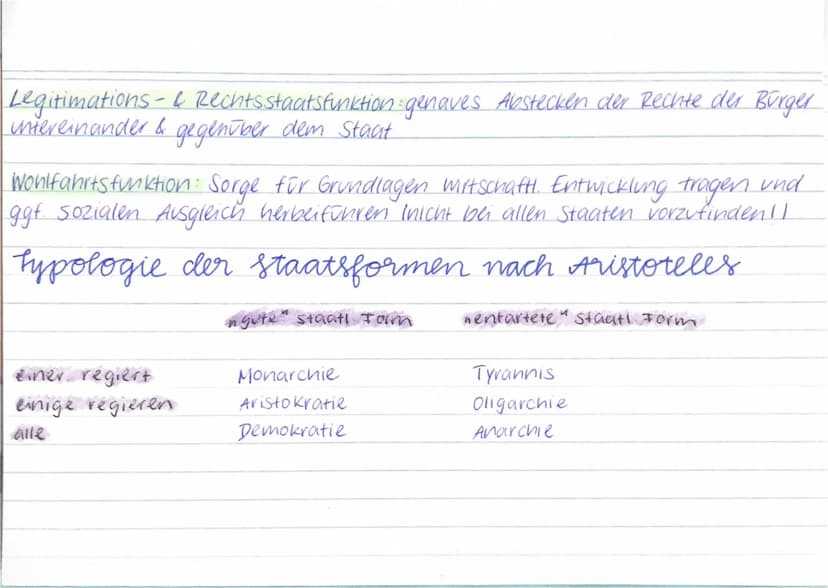 Legitimations- & Rechtsstaatsfunktion: genaues Abstecken der Rechte der Bürger
untereinander & gegenüber dem Staat
Wohlfahrtsfunktion: Sorge für Grundlagen wirtschaftl. Entwicklung tragen und
ggf. sozialen Ausgleich herbeiführen (nicht bei allen Staaten vorzufinden!)
Typologie der Staatsformen nach Aristoteles
"gute" staatl Form "entartete" staatl. Form
einer regiert Monarchie Tyrannis
einige regieren Aristokratie Oligarchie
alle Demokratie Anarchie